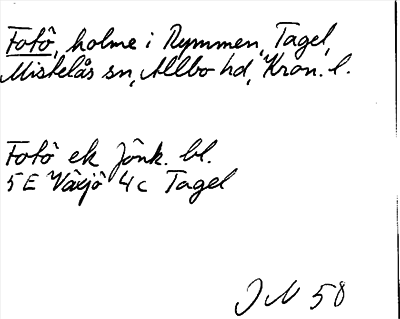 Fotö, holme i Rymmen, Tagel,
Mistelås sn, Allbo hd, Kron. l.
Fotö ek Jönk. bl.
5 E Växjö 4 c Tagel
J N 58